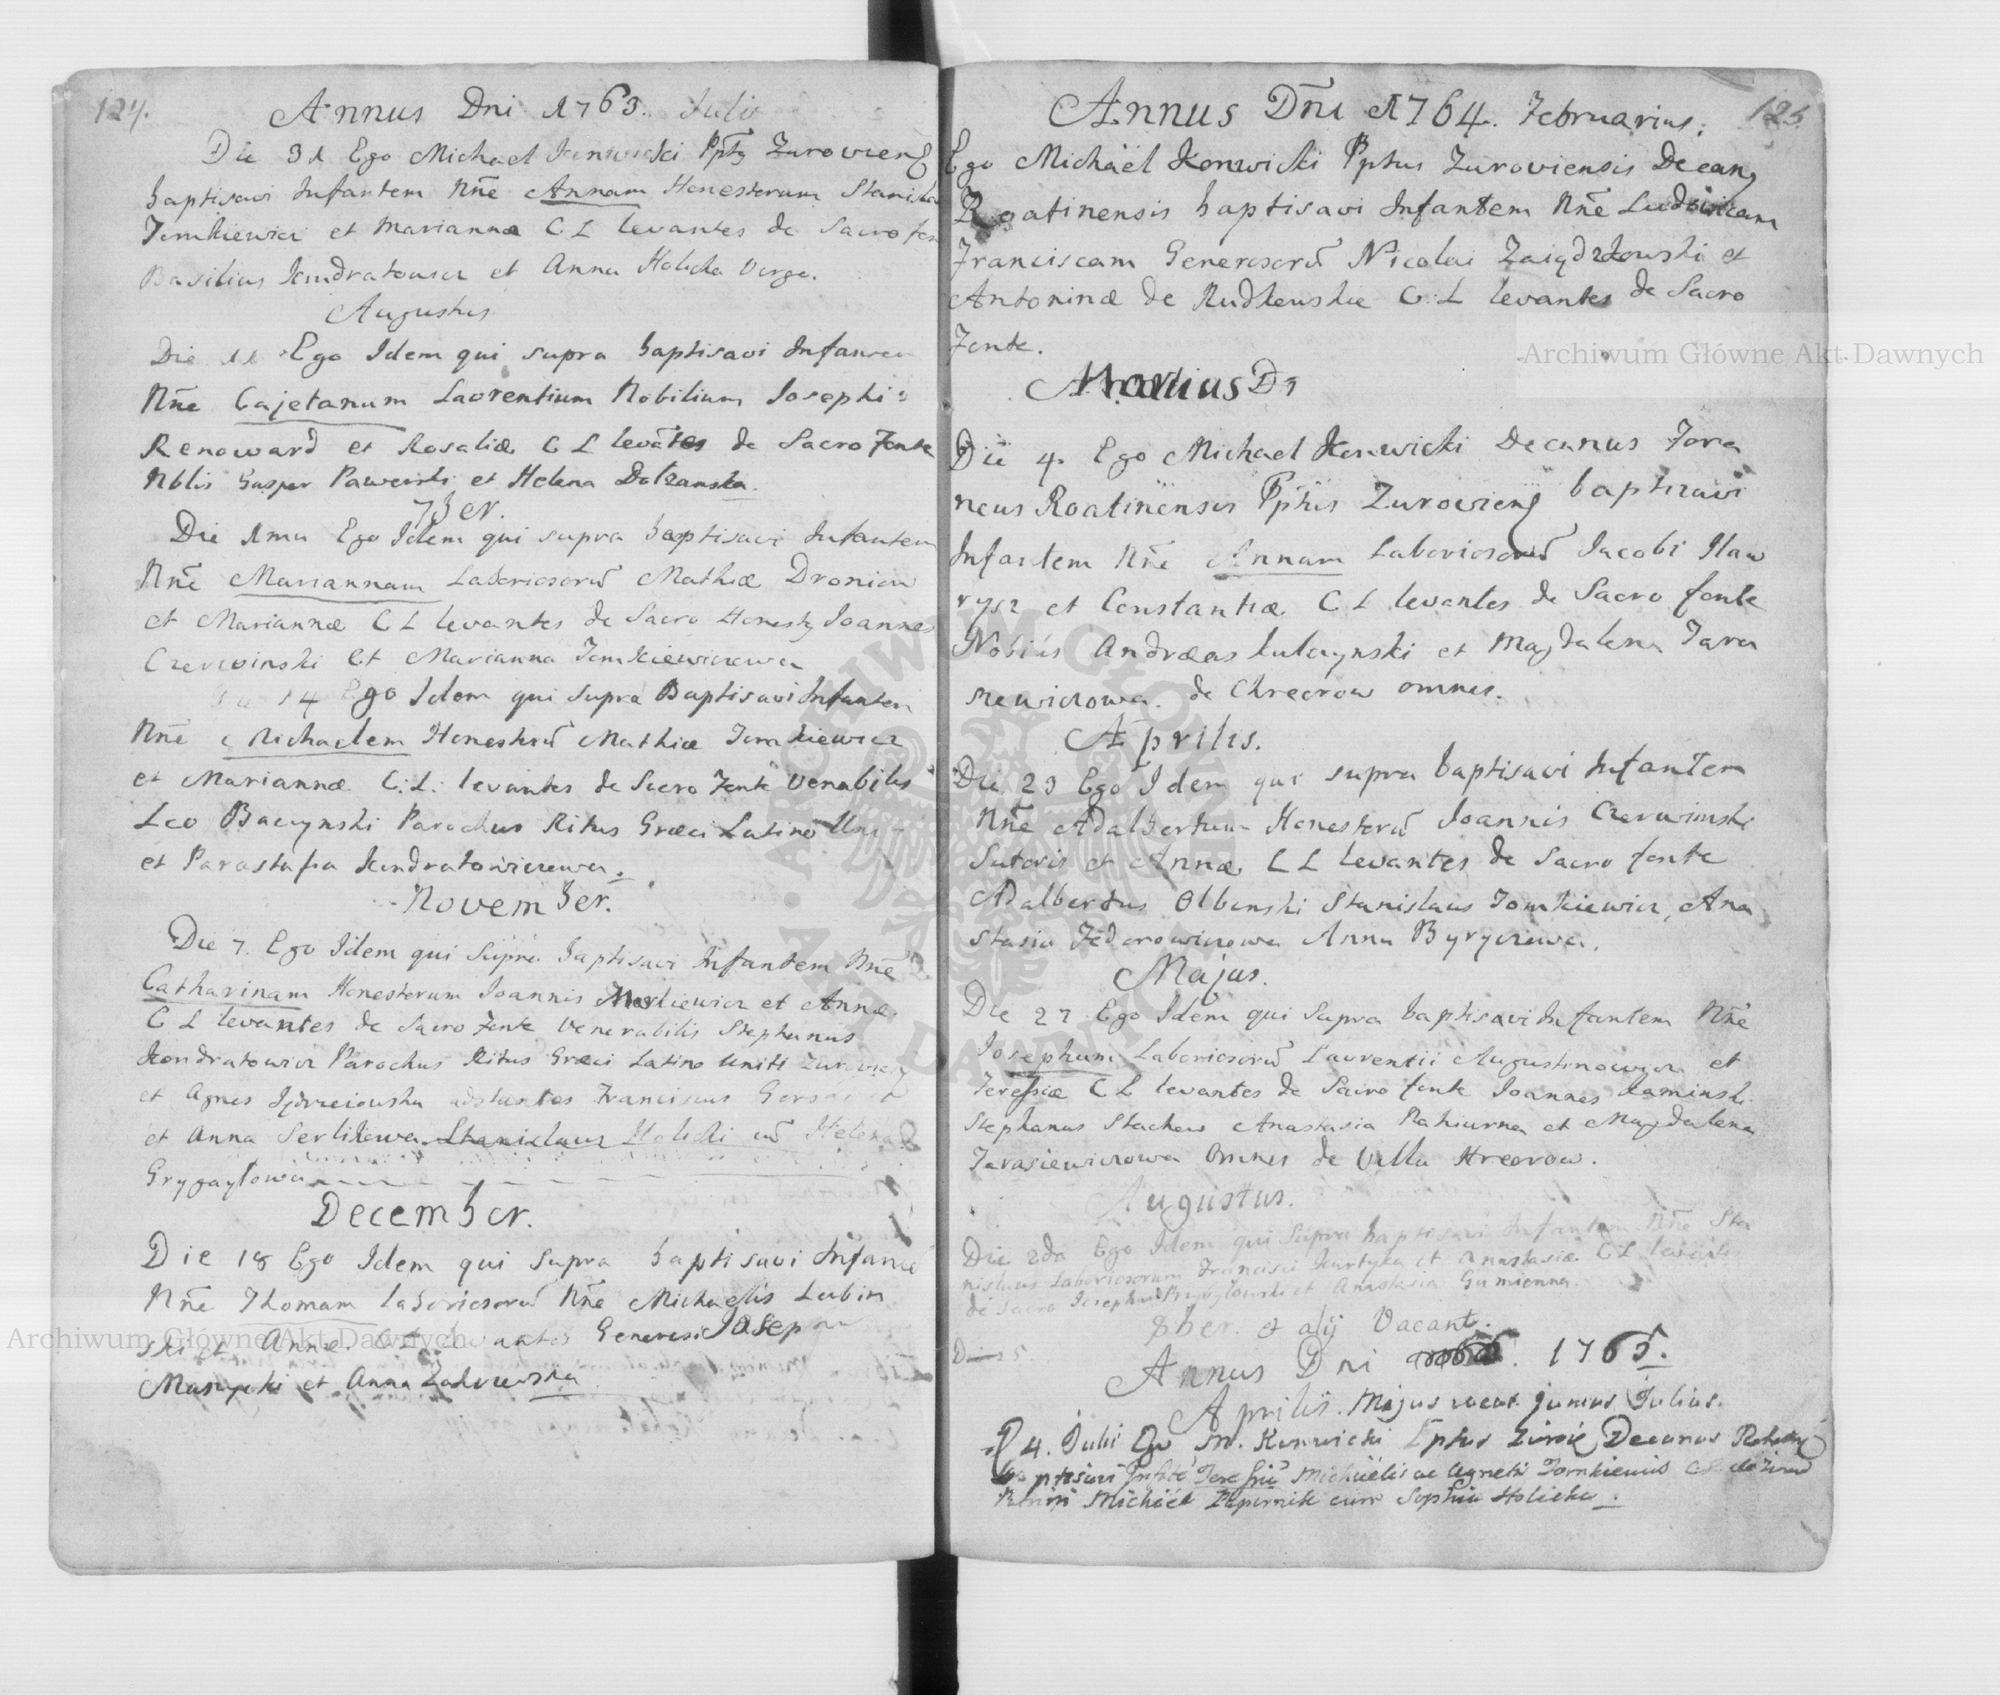 124.
Annus Dni 1763. Julis
Die 31 Ego Michael Konwicki Ppts Zurowieng
baptisavi Infantem Nñe Annam Honestorum Stanislai
Tomkiewicz et Marianna C L levantes de Sacro fon
Basilius Kondratowicz et Anna Holicka Virgo.
Augustus
Die 11 Ego Idem qui supra baptisavi Infantem
Nñe Cajetanum Laorentium Nobilium Josephi
Renoward et Rosaliæ C L levātes de Sacro Fonte
Nblis Gasper Pawerski et Helena Dolzanska.
7ber.
Die 1ma Ego Idem qui supra baptisavi Infantem
Nñe Mariannam Laboriosorū Mathiæ Dronicz
et Mariannæ C L levantes de Sacro Honesty Joannes
Czerwinski et Marianna Tomkiewiczowa
Die 14 Ego Idem qui supra Baptisavi Infantem
Nñe Michaelem Honestorū Mathiæ Tomkiewicz
et Mariannæ C: L: levantes de Sacro Fonte Venabilis
Leo Baczynski Parochus Ritus Græci Latino Uni-
et Parastafia Kondratowiczowa.
November.
Die 7. Ego Idem qui supra baptisavi Infantem Nñe
Catharinam Honestorum Joannis Maskiewicz et Annæ
C L levantes de Sacro Fonte Venerabilis Stephanus
Kondratowicz Parochus Ritus Græci Latino Uniti Zurowieng
et Agnes adstantes Franciscus
et Anna Serlikowa Stanislaus Holicki cū Helena
Grygaytowa
December.
Die 18 Ego Idem qui supra baptisavi Infante
Nñe Thomam laboriosorū Nñe Michaelis Lubin
ski et Annæ. C L levantes Generosi Joseph
Muszycki et Anna Zadurowska
125.
Annus Dñi 1764. Februarius.
Ego Michaël Konwicki Pptus Zuroviensis Decang
Roatinensis baptisavi Infantem Nñe Ludovicam
Franciscam Generosorū Nicolai Zaigdzłowski et
Antoninæ de Rudkowskie C: L levantes de Sacro
Fonte.
Martius D
Die 4. Ego Michael Konwicki Decanus Fora
neus Roatinensis Pptus Zurovieng baptizavi
Infantem Nñe Annam Laboriosorū Jacobi Ilaw
rysz et Constantiæ C L levantes de Sacro fonte
Nobiis Andræas Lulczynski et Magdalena Tara
siewiczowa. de Chrecrow omnes.
Aprilis.
Die 23 Ego Idem qui supra baptisavi Infantem
Nñe Adalbertum Honestorū Joannis Czerwinski
Sutoris et Annæ C L levantes de Sacro fonte
Adalbertus Olbenski Stanislaus Tomkiewicz, Ana
stasia Fedorowiczowa Anna Byryczowa.
Majus.
Die 27 Ego Idem qui supra baptisavi Infantem Nñe
Josephum Laboriosorū Laurentii Augustinowicz et
Teressiæ C L levantes de Sacro fonte Joannes Kaminski
Stephanus Stachow Anastasia Pahiurna et Magdalena
Tarasiewiczowa Omnes de Villa Hreorow.
Augustus.
Die 2da Ego Idem qui supra baptisavi Infantem Nñe Sta
nislaus Laboriosorum Francisci Kurtyka et Anastasiæ C L levantes
de Sacro Josephus Przybyłowski et Anastasia Gumienna.
8ber. et alij Vacant.
D 25
Annus Dni 1765.
Aprilis. Majus vacat. Junius Julius.
D 4. Julii Ego M. Konwicki Pptus Zurovie Decanus Rohatn
baptisavi Infātē Teresiā Michaëlis ac Agnetis Tomkiewicz C L
Michaël Kopernik cum Sophia Holicka.
Archiwum Główne Akt Dawnych
Archiwum Główne Akt Dawnych
ARCHIWUM GŁÓWNE AKT DAWNYCH